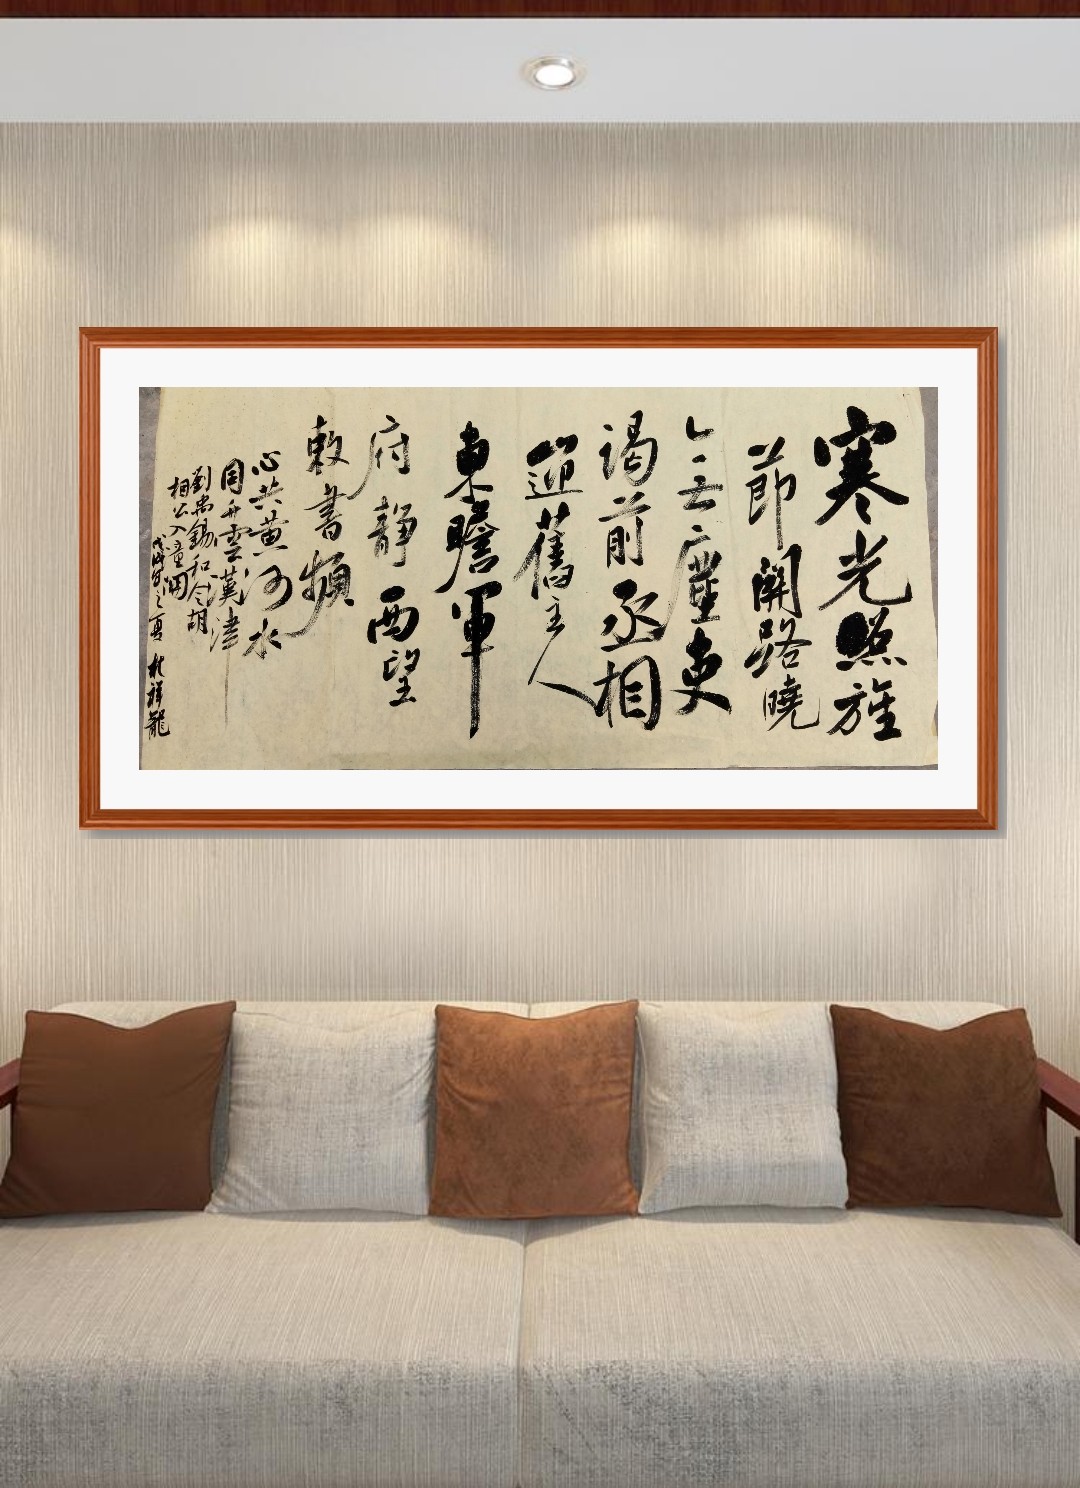 寒光照旌
節開路曉
無塵吏
謁前丞相
山迎舊主人
東瞻軍
府靜西望
敕書頻
心共黄河水
同升雲漢津
劉禹錫和令胡
相公入潼関
之夏 祥龍